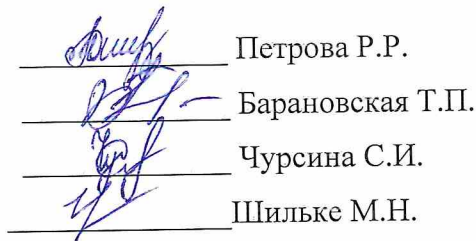 Петрова Р.Р.
Барановская Т.П.
Чурсина С.И.
Шильке М.Н.